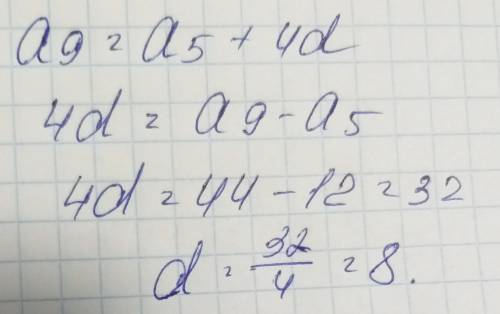 a9 = a5 + 4d
4d = a9 - a5
4d = 44 - 12 = 32
d = 32/4 = 8.